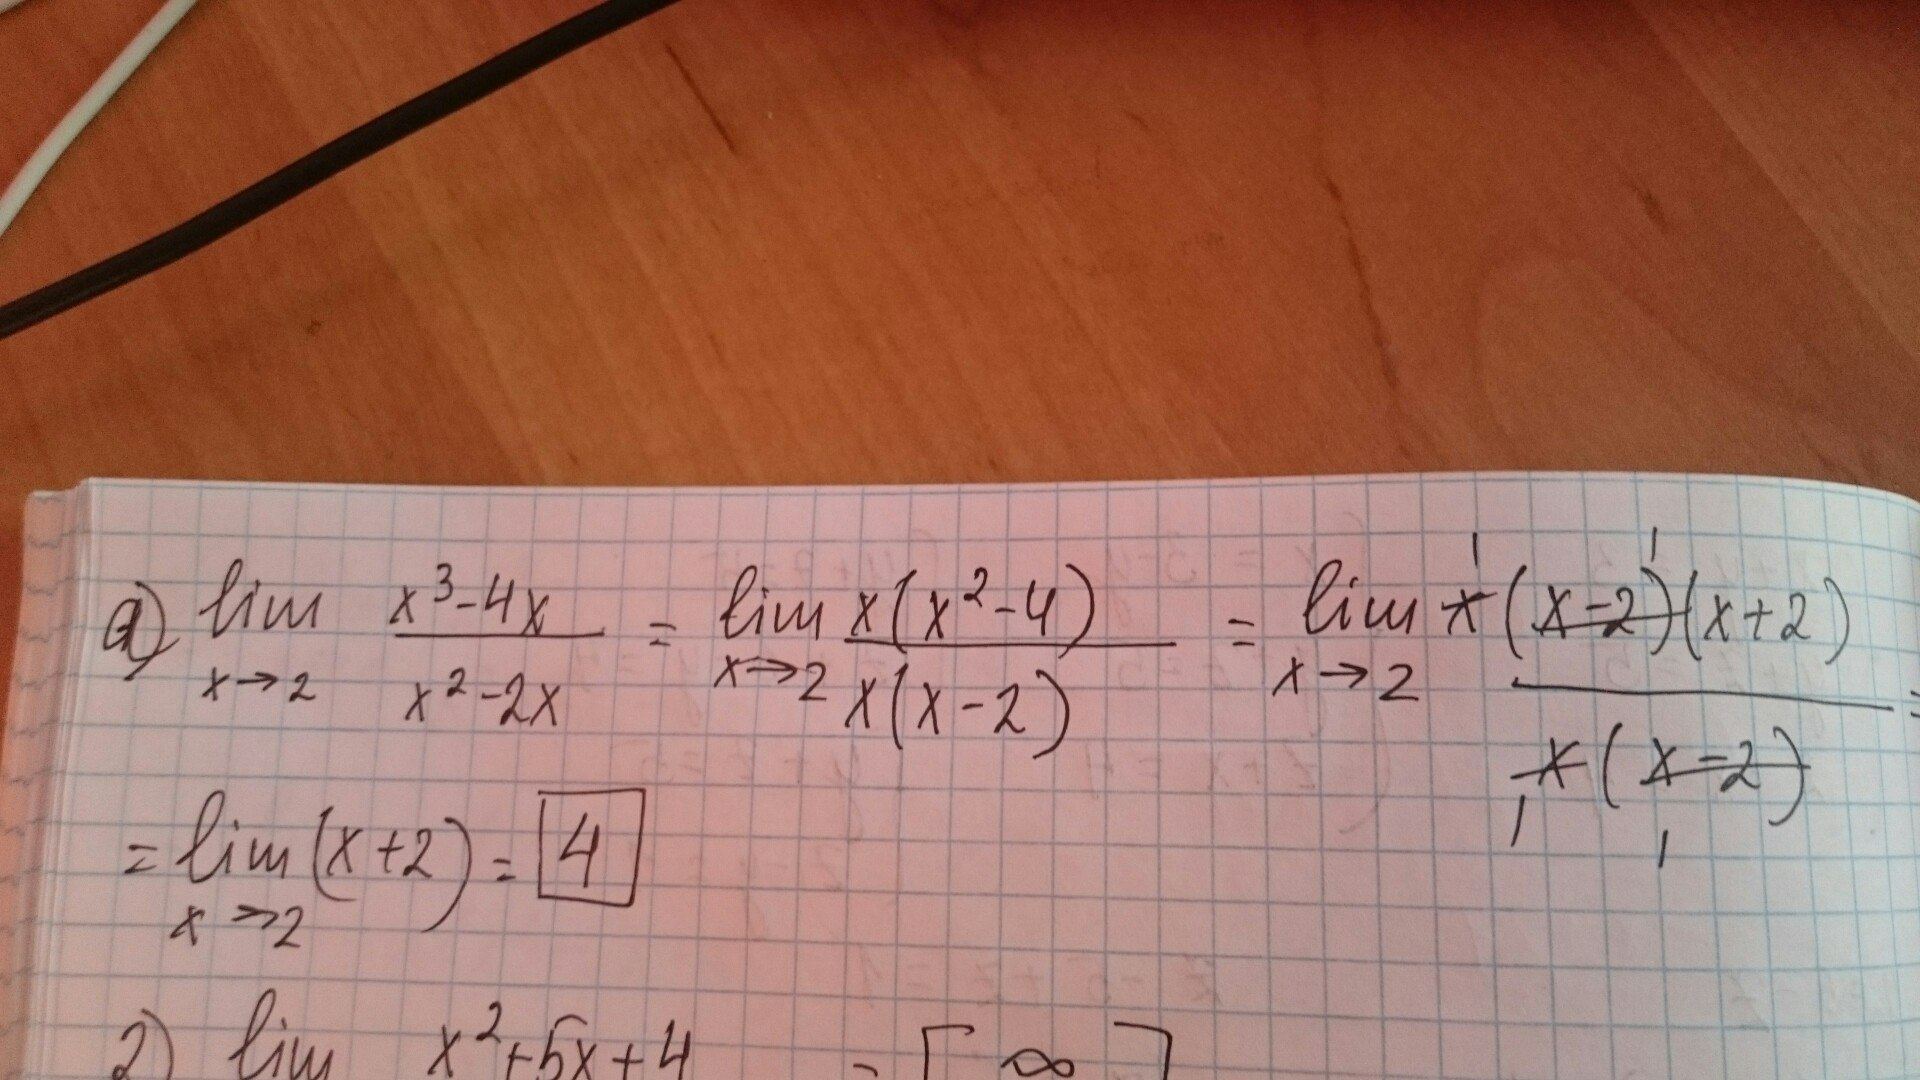 а) lim x→2 (x³-4x)/(x²-2x) = lim x→2 x(x²-4)/x(x-2) = lim x→2 x(x-2)(x+2)/x(x-2) =
= lim x→2 (x+2) = 4
2) lim x²+5x+4 = [∞]